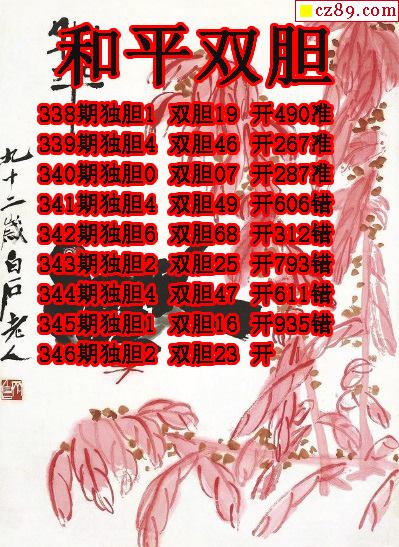 cz89.com
和平双胆
338期独胆1 双胆19 开490准
339期独胆4 双胆46 开267准
340期独胆0 双胆07 开287准
341期独胆4 双胆49 开606错
342期独胆6 双胆68 开312错
343期独胆2 双胆25 开793错
344期独胆4 双胆47 开611错
345期独胆1 双胆16 开935错
346期独胆2 双胆23 开
九十二岁白石老人